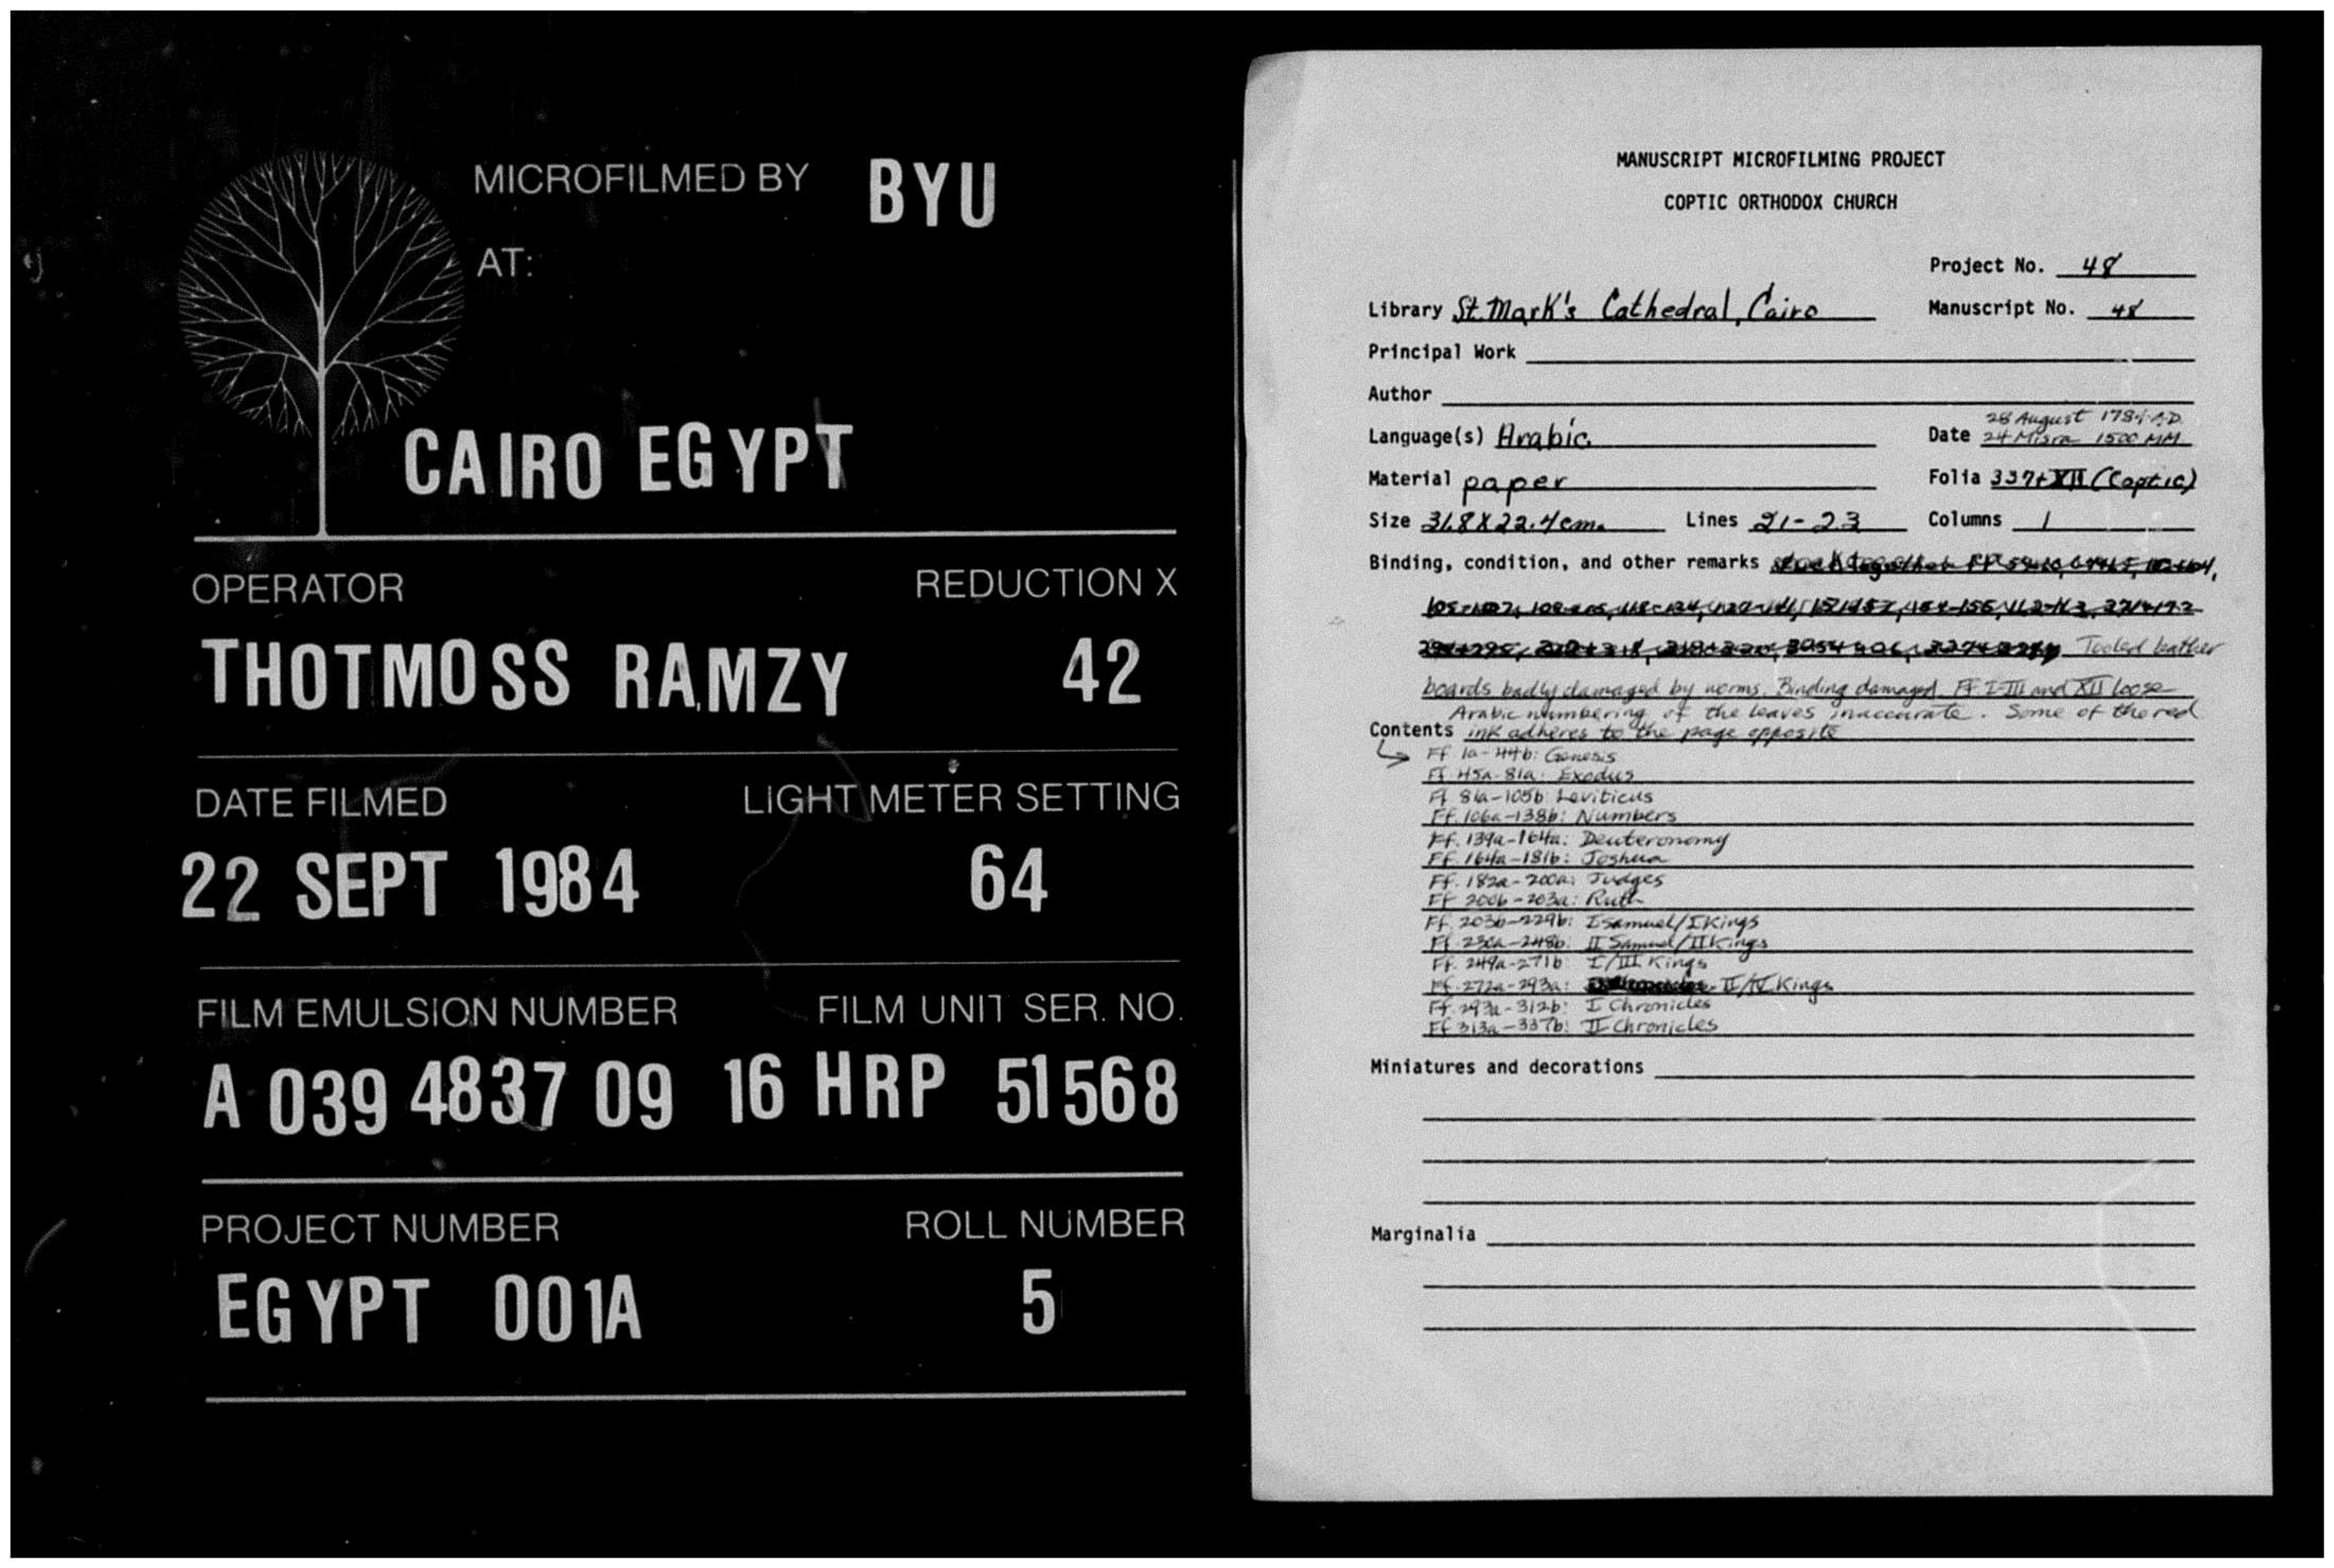 MICROFILMED BY BYU
AT:
CAIRO EGYPT
OPERATOR REDUCTION X
THOTMOSS RAMZY 42
DATE FILMED LIGHT METER SETTING
22 SEPT 1984 64
FILM EMULSION NUMBER FILM UNIT SER. NO.
A 039 4837 09 16 HRP 51568
PROJECT NUMBER ROLL NUMBER
EGYPT 001A 5
MANUSCRIPT MICROFILMING PROJECT
COPTIC ORTHODOX CHURCH
Project No. 48
Library St. Mark's Cathedral, Cairo Manuscript No. 48
Principal Work
Author
28 August 1784 A.D.
Language(s) Arabic Date 24 Misra 1500 MM
Material paper Folia 337+XII (Coptic)
Size 31.8 X 22.4 cm. Lines 21-23 Columns 1
Binding, condition, and other remarks
Tooled leather
boards badly damaged by worms. Binding damaged. Ff. I-III and XII loose
Arabic numbering of the leaves inaccurate. Some of the red
Contents ink adheres to the page opposite
Ff 1a-44b: Genesis
Ff 45a-81a: Exodus
Ff 81a-105b: Leviticus
Ff. 106a-138b: Numbers
Ff. 139a-164a: Deuteronomy
Ff. 164a-181b: Joshua
Ff. 182a-200a: Judges
Ff 200b-203a: Ruth
Ff. 203b-229b: I Samuel/I Kings
Ff. 230a-248b: II Samuel/II Kings
Ff. 249a-271b: I/III Kings
Ff. 272a-293a: II/IV Kings
Ff. 293a-312b: I Chronicles
Ff 313a-337b: II Chronicles
Miniatures and decorations
Marginalia